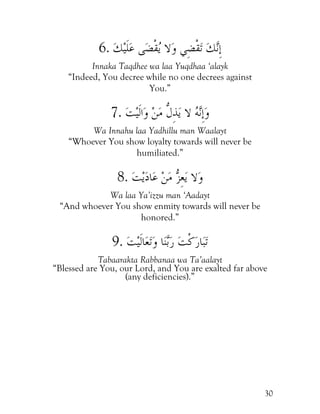 6. إِنَّكَ تَقْضِي وَلَا يُقْضَى عَلَيْكَ
Innaka Taqdhee wa laa Yuqdhaa ‘alayk
“Indeed, You decree while no one decrees against
You.”
7. وَإِنَّهُ لَا يَذِلُّ مَنْ وَالَيْتَ
Wa Innahu laa Yadhillu man Waalayt
“Whoever You show loyalty towards will never be
humiliated.”
8. وَلَا يَعِزُّ مَنْ عَادَيْتَ
Wa laa Ya’izzu man ‘Aadayt
“And whoever You show enmity towards will never be
honored.”
9. تَبَارَكْتَ رَبَّنَا وَتَعَالَيْتَ
Tabaarakta Rabbanaa wa Ta’aalayt
“Blessed are You, our Lord, and You are exalted far above
(any deficiencies).”
30